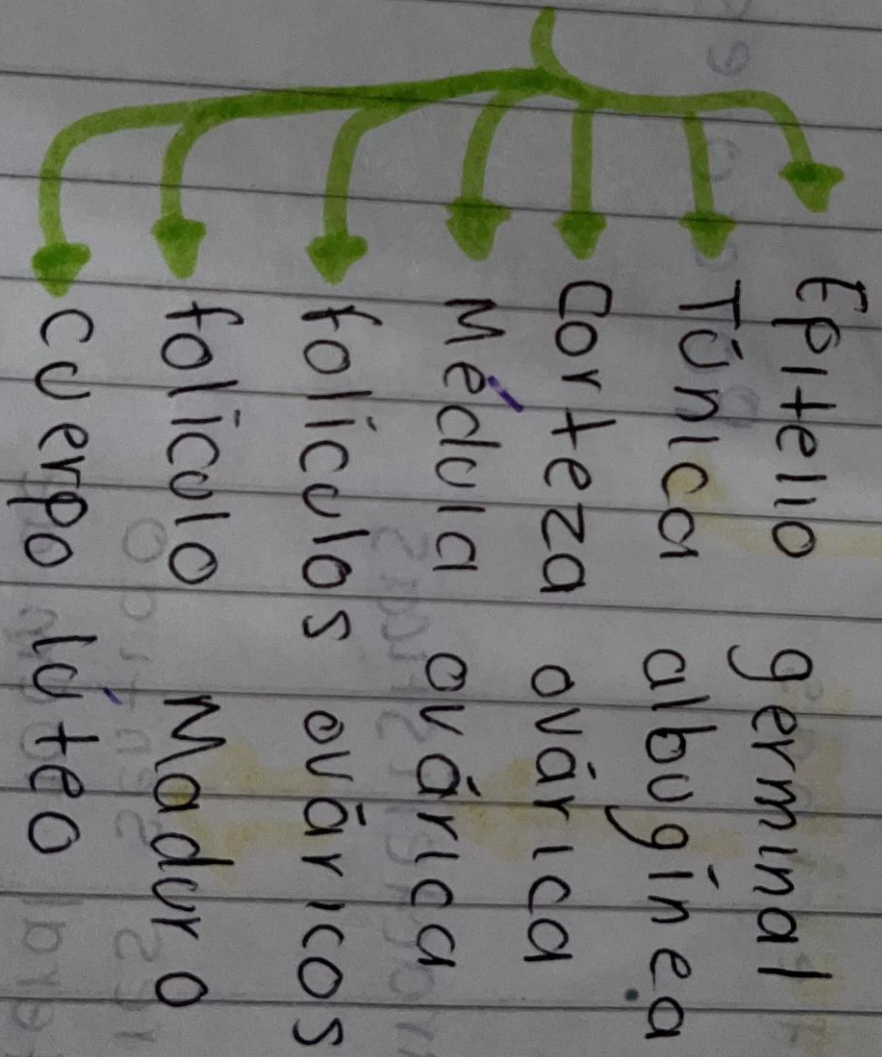 Epitelio germinal
Túnica albugínea
Corteza ovárica
Médula ovárica
folículos ováricos
folículo Maduro
cuerpo lúteo